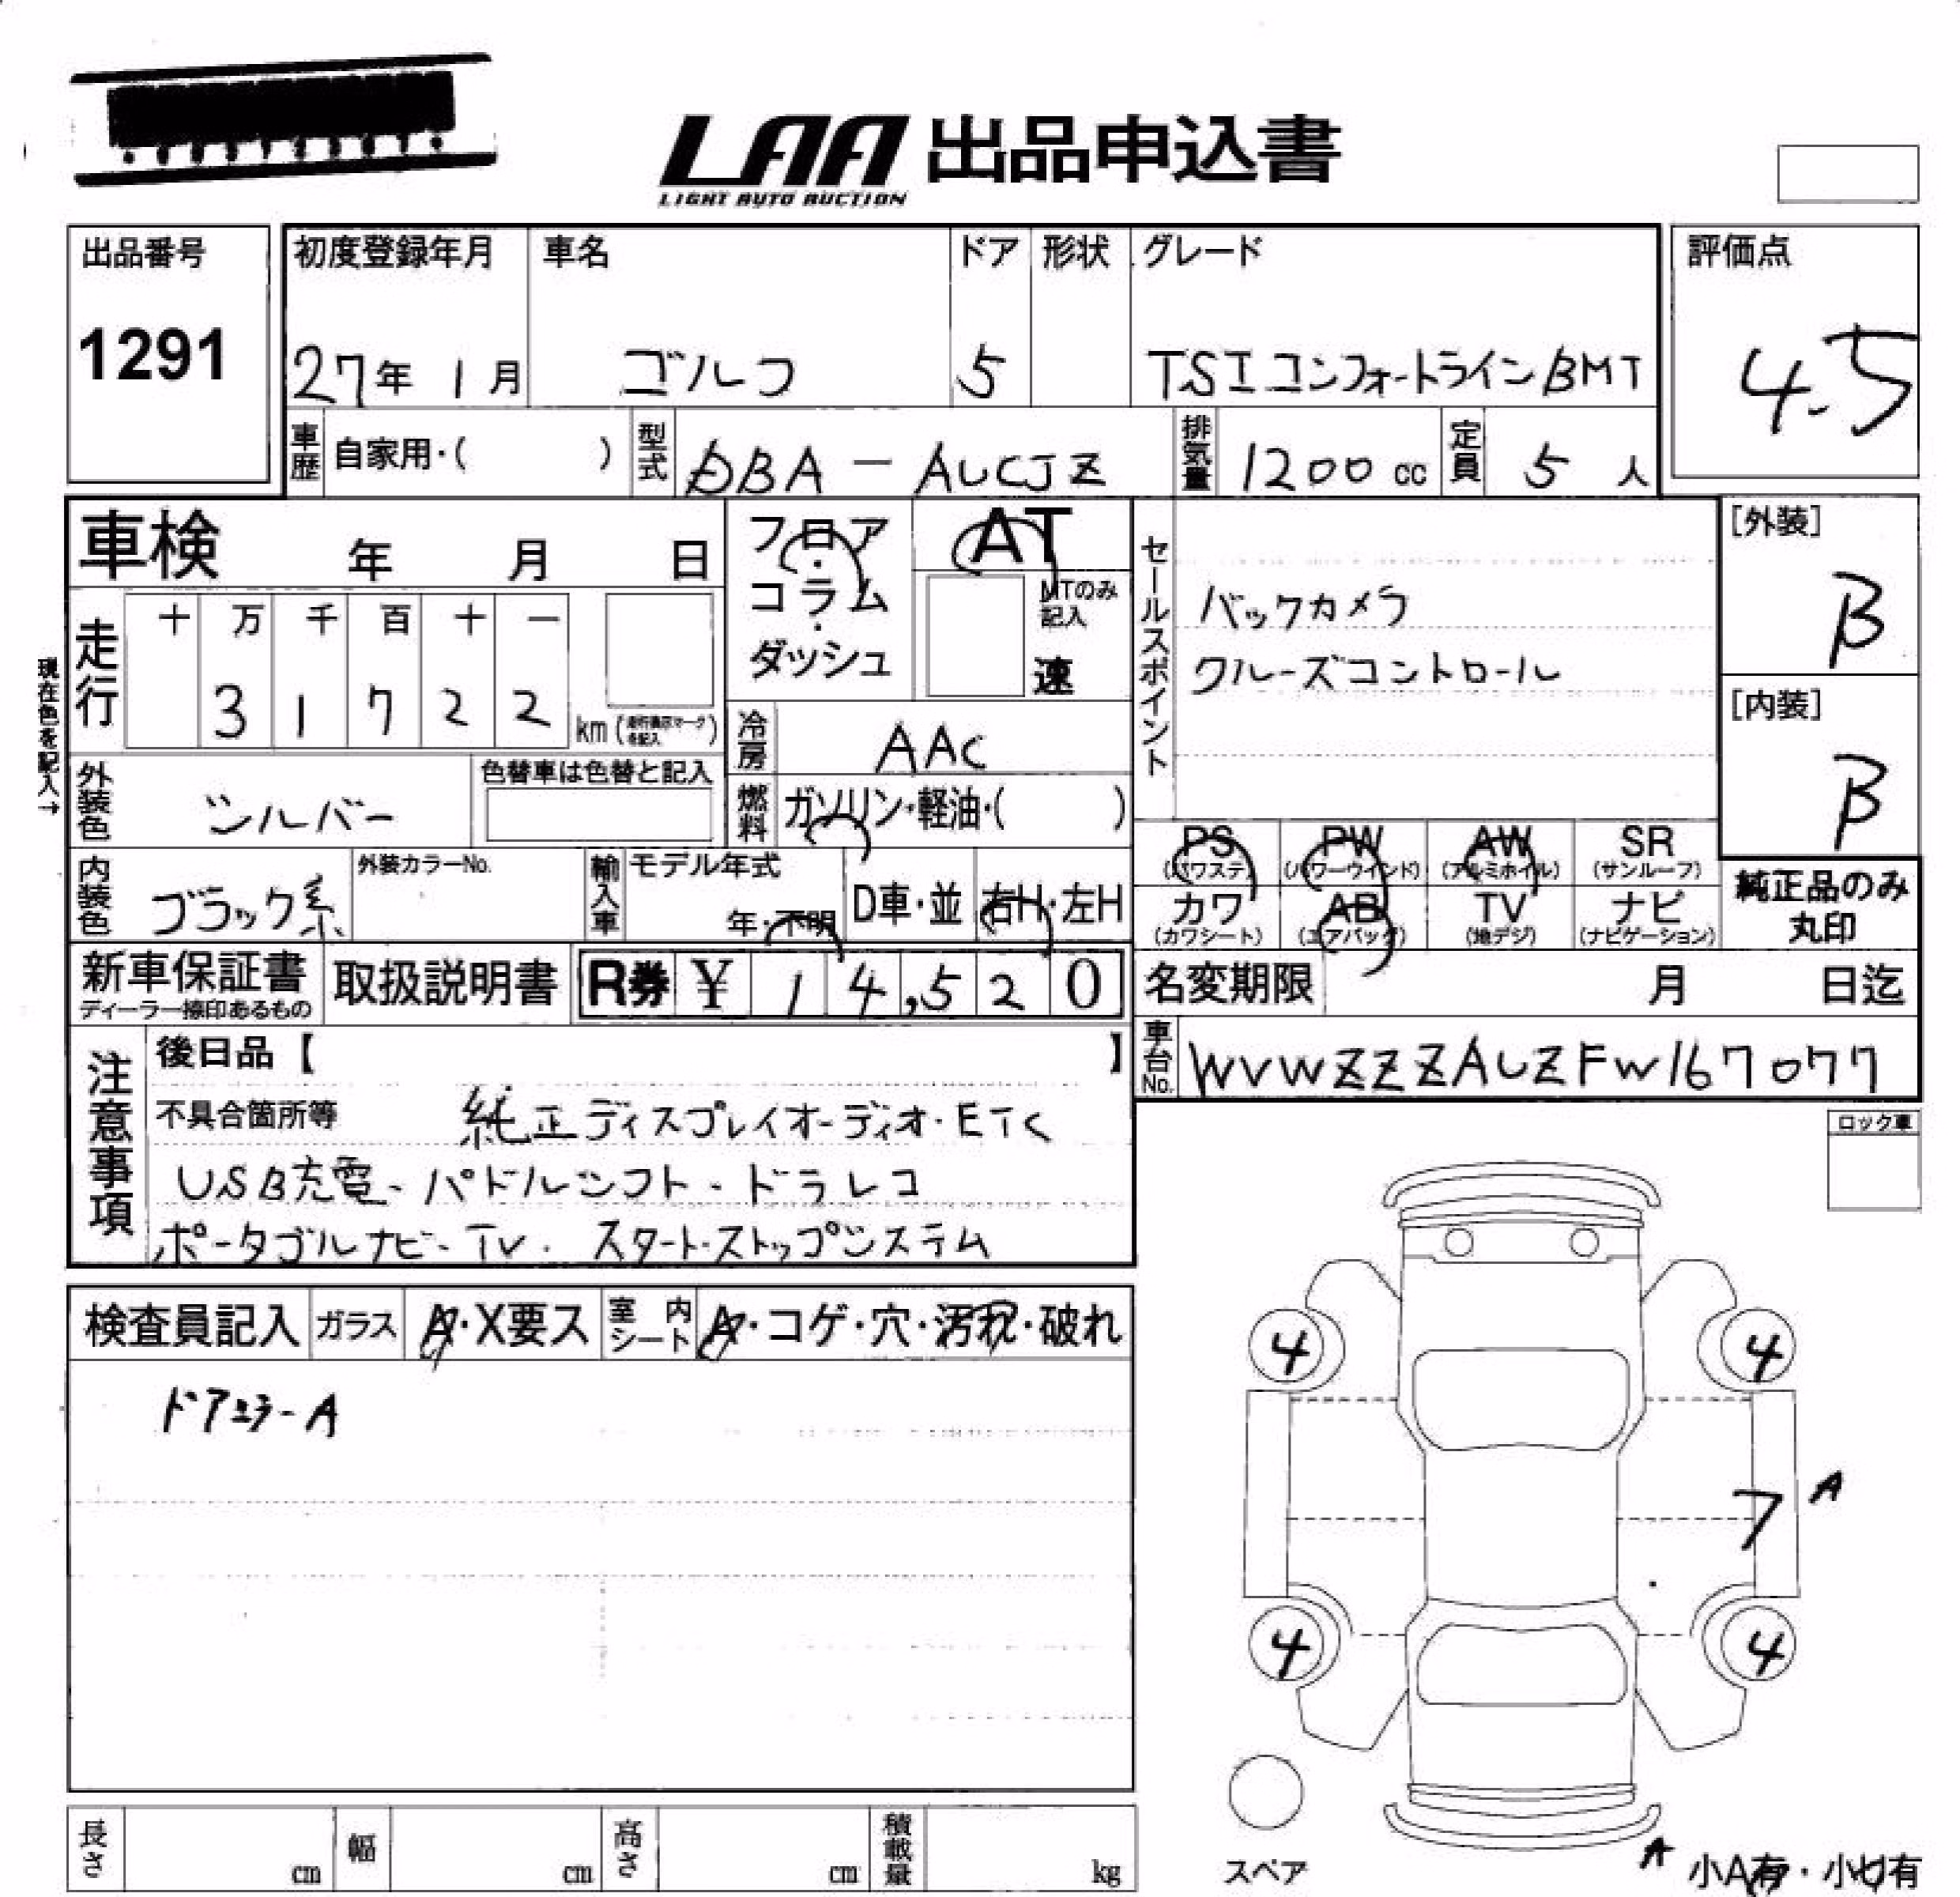 LAA 出品申込書
LIGHT AUTO AUCTION
出品番号
1291
初度登録年月
27年 1月
車名
ゴルフ
ドア
5
形状
グレード
TSIコンフォートラインBMT
評価点
4.5
車歴 自家用・( )
型式 DBA-AUCJZ
排気量 1200 cc
定員 5 人
車検 年 月 日
フロア・コラム・ダッシュ
AT
MTのみ記入
速
走行
十 万 千 百 十 一
3 1 7 2 2 km
現在色を記入→
外装色 シルバー
色替車は色替と記入
冷房 AAC
燃料 ガソリン・軽油・( )
セールスポイント
バックカメラ
クルーズコントロール
[外装]
B
[内装]
B
内装色 ブラック系
外装カラーNo.
輸入車
モデル年式
年・不明
D車・並
右H・左H
PS (パワステ) PW (パワーウインド) AW (アルミホイル) SR (サンルーフ)
カワ (カワシート) AB (エアバッグ) TV (地デジ) ナビ (ナビゲーション)
純正品のみ
丸印
新車保証書
ディーラー捺印あるもの
取扱説明書
R券 ¥ 14,520
名変期限 月 日迄
車台No. WVWZZZAUZFW167077
注意事項
後日品【 】
不具合箇所等 純正ディスプレイオーディオ・ETC
USB充電・パドルシフト・ドラレコ
ポータブルナビ・TV・スタート・ストップシステム
ロック車
検査員記入
ガラス A・X要ス
室内シート A・コゲ・穴・汚れ・破れ
ドアミラーA
4 4
A
7
4 4
スペア
A
小A有・小U有
長さ cm
幅 cm
高さ cm
積載量 kg